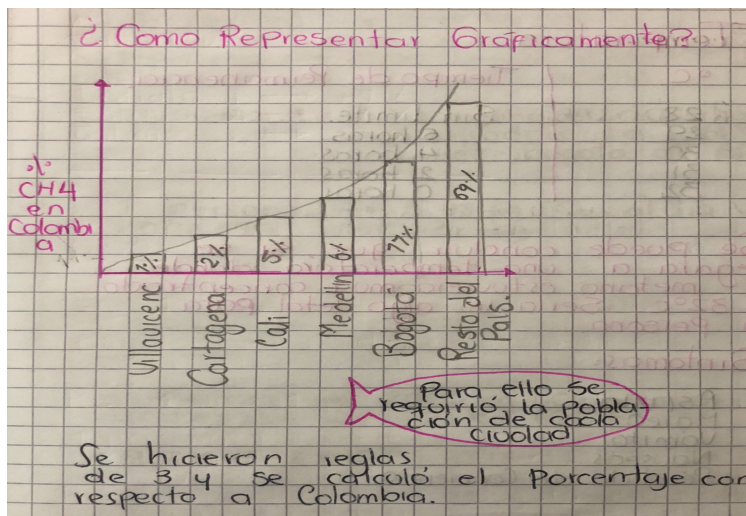 ¿ Como Representar Graficamente?
%
CH4
en
Colombi
a
1%
2%
5%
6%
17%
69%
Villavicenc
Cartagena
Cali
Medellin
Bogotá
Resto del
País.
Para ello se
requirió la pobla-
ción de cada
ciudad
Se hicieron reglas
de 3 y se calculó el Porcentaje con
respecto a Colombia.